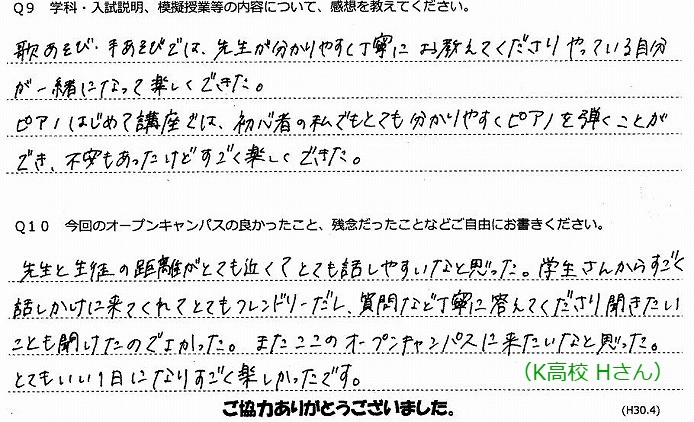 Q9 学科・入試説明、模擬授業等の内容について、感想を教えてください。
歌あそび・手あそびでは、先生が分かりやすく丁寧にお教えてくださりやっている自分
が一緒になって楽しくできた。
ピアノはじめて講座では、初心者の私でもとても分かりやすくピアノを弾くことが
でき、不安もあったけどすごく楽しくできた。
Q10 今回のオープンキャンパスの良かったこと、残念だったことなどご自由にお書きください。
先生と生徒の距離がとても近くてとても話しやすいなと思った。学生さんからすごく
話しかけに来てくれてとてもフレンドリーだし、質問など丁寧に答えてくださり聞きたい
ことも聞けたのでよかった。またここのオープンキャンパスに来たいなと思った。
とてもいい1日になりすごく楽しかったです。
(K高校 Hさん)
ご協力ありがとうございました。
(H30.4)